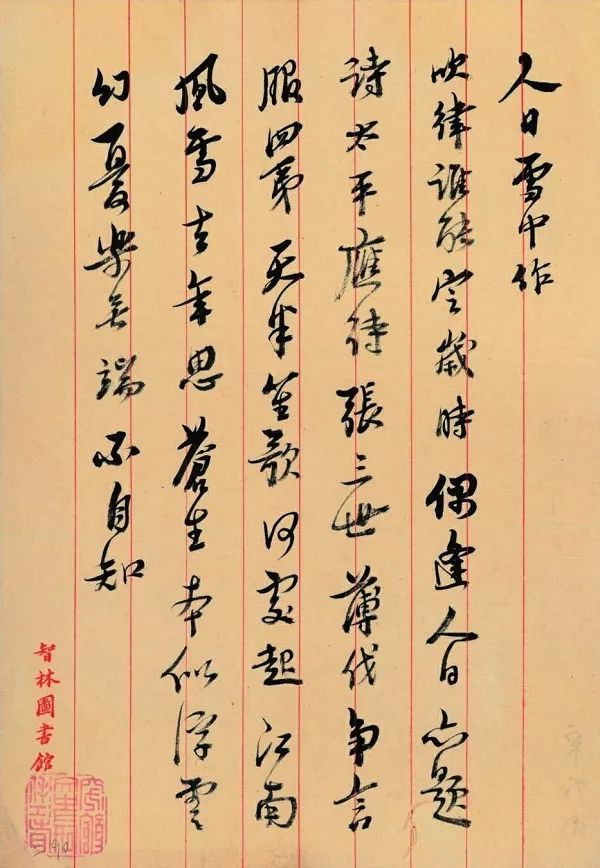 人日雪中作
吹律誰能定歲時偶逢人日亦題
詩太平應待張三世薄伐爭言
服四夷天半笙歌何處起江南
風雪去年思蒼生本似浮雲
幻憂樂無端不自知
智林圖書館